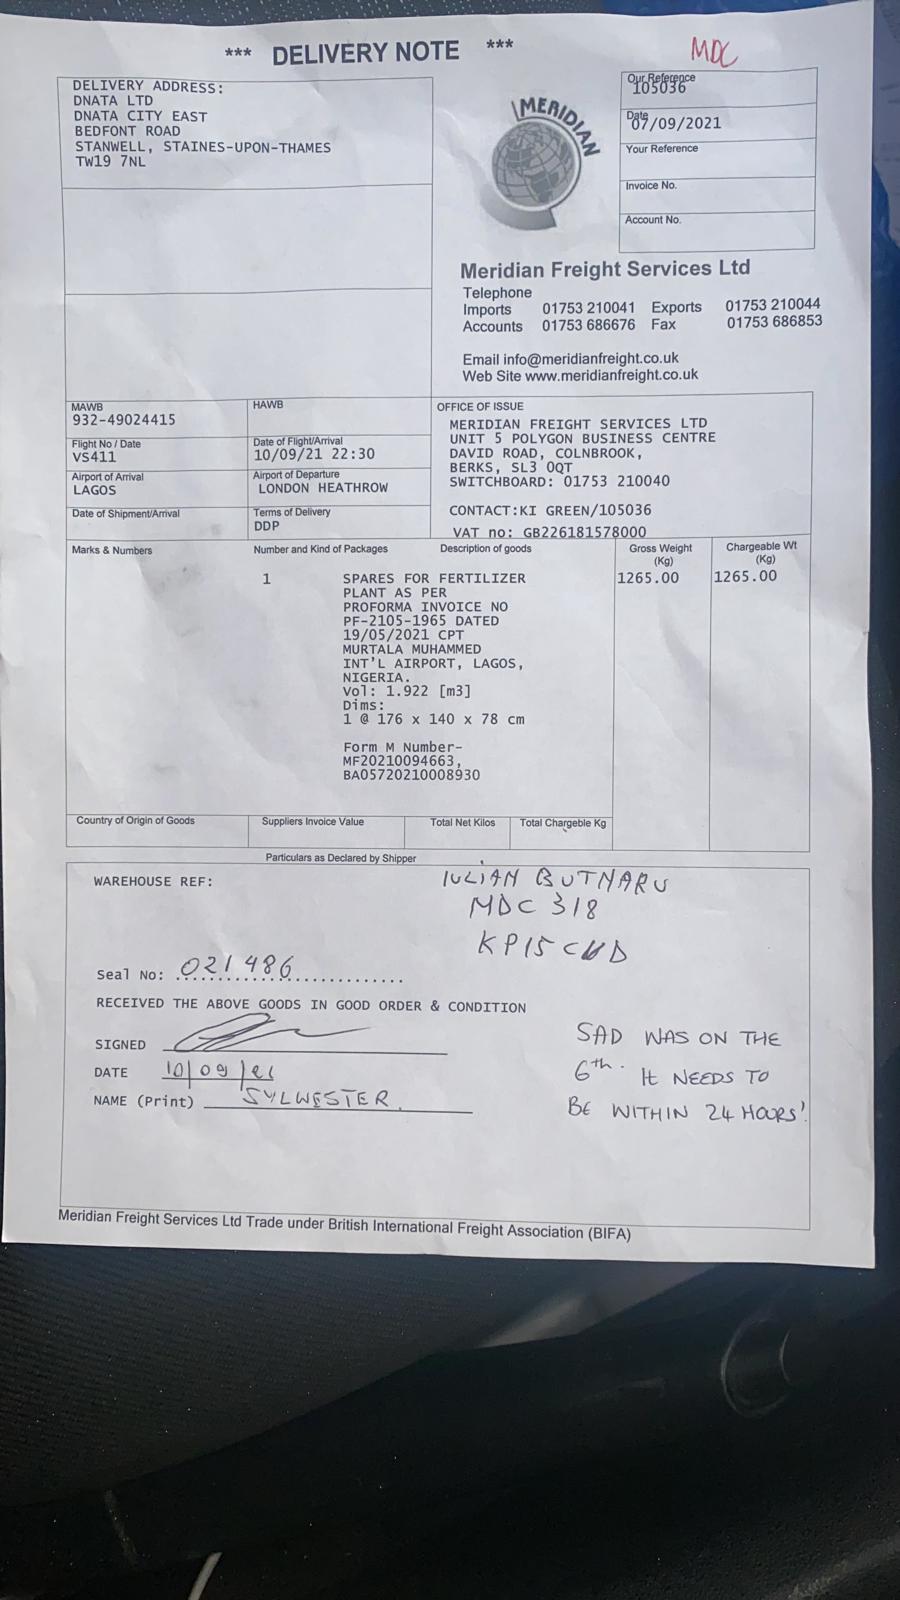 *** DELIVERY NOTE ***
MDC
DELIVERY ADDRESS:
DNATA LTD
DNATA CITY EAST
BEDFONT ROAD
STANWELL, STAINES-UPON-THAMES
TW19 7NL
MERIDIAN
Our Reference
105036
Date
07/09/2021
Your Reference
Invoice No.
Account No.
Meridian Freight Services Ltd
Telephone
Imports 01753 210041 Exports 01753 210044
Accounts 01753 686676 Fax 01753 686853
Email info@meridianfreight.co.uk
Web Site www.meridianfreight.co.uk
MAWB
932-49024415
HAWB
Flight No / Date
VS411
Date of Flight/Arrival
10/09/21 22:30
Airport of Arrival
LAGOS
Airport of Departure
LONDON HEATHROW
Date of Shipment/Arrival
Terms of Delivery
DDP
OFFICE OF ISSUE
MERIDIAN FREIGHT SERVICES LTD
UNIT 5 POLYGON BUSINESS CENTRE
DAVID ROAD, COLNBROOK,
BERKS, SL3 0QT
SWITCHBOARD: 01753 210040
CONTACT:KI GREEN/105036
VAT no: GB226181578000
Marks & Numbers Number and Kind of Packages Description of goods Gross Weight (Kg) Chargeable Wt (Kg)
1 SPARES FOR FERTILIZER 1265.00 1265.00
PLANT AS PER
PROFORMA INVOICE NO
PF-2105-1965 DATED
19/05/2021 CPT
MURTALA MUHAMMED
INT'L AIRPORT, LAGOS,
NIGERIA.
Vol: 1.922 [m3]
Dims:
1 @ 176 x 140 x 78 cm
Form M Number-
MF20210094663,
BA05720210008930
Country of Origin of Goods Suppliers Invoice Value Total Net Kilos Total Chargeble Kg
Particulars as Declared by Shipper
WAREHOUSE REF:
IULIAN BUTNARU
MDC 318
Seal No: 021486
RECEIVED THE ABOVE GOODS IN GOOD ORDER & CONDITION
SIGNED
DATE 10/09/21
NAME (Print) SYLWESTER
SAD WAS ON THE
6th. IT NEEDS TO
BE WITHIN 24 HOURS!
Meridian Freight Services Ltd Trade under British International Freight Association (BIFA)